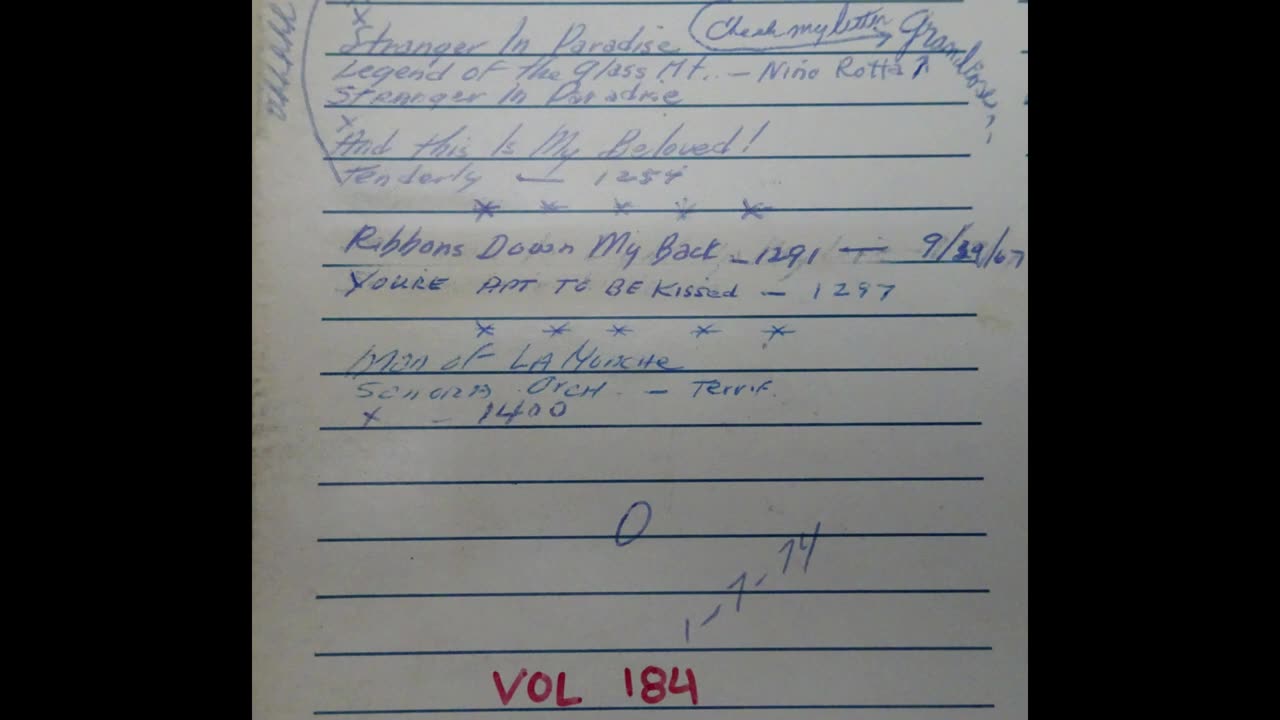 Stranger In Paradise
Legend of the Glass Mt. - Nino Rotta
Stranger In Paradise
x
And this Is My Beloved!
Tenderly - 1254
x x x x x
Ribbons Down My Back - 1291 - 9/29/67
YOU'RE APT TO BE Kissed - 1297
x x x x x
Man of LA
Orch. - Terrif.
x - 1400
0
1-7-74
VOL 184